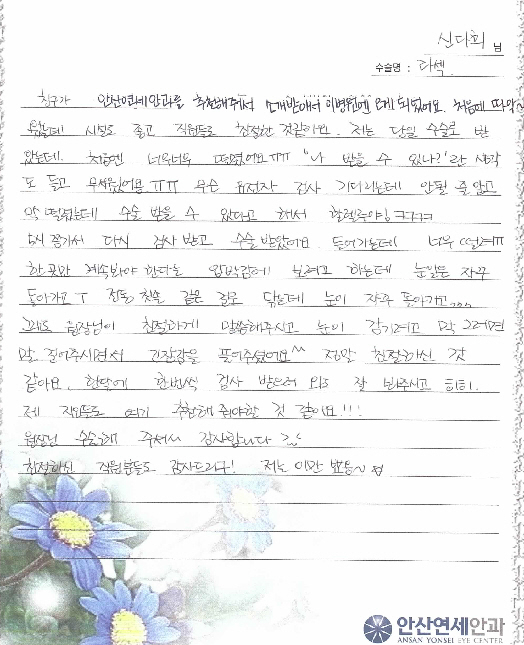 신다회 님
수술명 : 라섹
친구가 안산연세안과를 추천해줘서 소개받아서 이병원에 오게 되었어요. 처음에 딱
왔는데 시설도 좋고 직원들도 친절한 것같아요. 저는 당일 수술로 받
았는데. 처음엔 너무너무 떨렸어요ㅠㅠ "나 받을 수 있나?"란 생각
도 들고 무서웠어요ㅠㅠ 무슨 유전자 검사 기다리는데 안될 줄 알고
막 떨렸는데 수술 받을 수 있다고 해서 할렐루야!! ㅋㅋㅋㅋ
5시 쫌가서 다시 검사 받고 수술 받았어요. 들어가는데 너무 떨려ㅠ
한곳만 계속봐야 한다는 압박감에 보려고 하는데 눈알은 자꾸
돌아가고ㅜ 전동 칫솔 같은 걸로 닦는데 눈이 자꾸 돌아가고
그래도 원장님이 친절하게 말씀해주시고 눈이 감기려고 막 그러면
말 걸어주시면서 긴장감을 풀어주셨어요^^ 정말 친절하신 것
같아요. 한달에 한번씩 검사 받으러 와도 잘 봐주시고 히히.
제 지인들도 여기 추천해 줘야할 것 같아요!!!
원장님 수술해 주셔서 감사합니다
친절하신 직원분들도 감사드려구! 저는 이만 뿅뿅~
안산연세안과
ANSAN YONSEI EYE CENTER